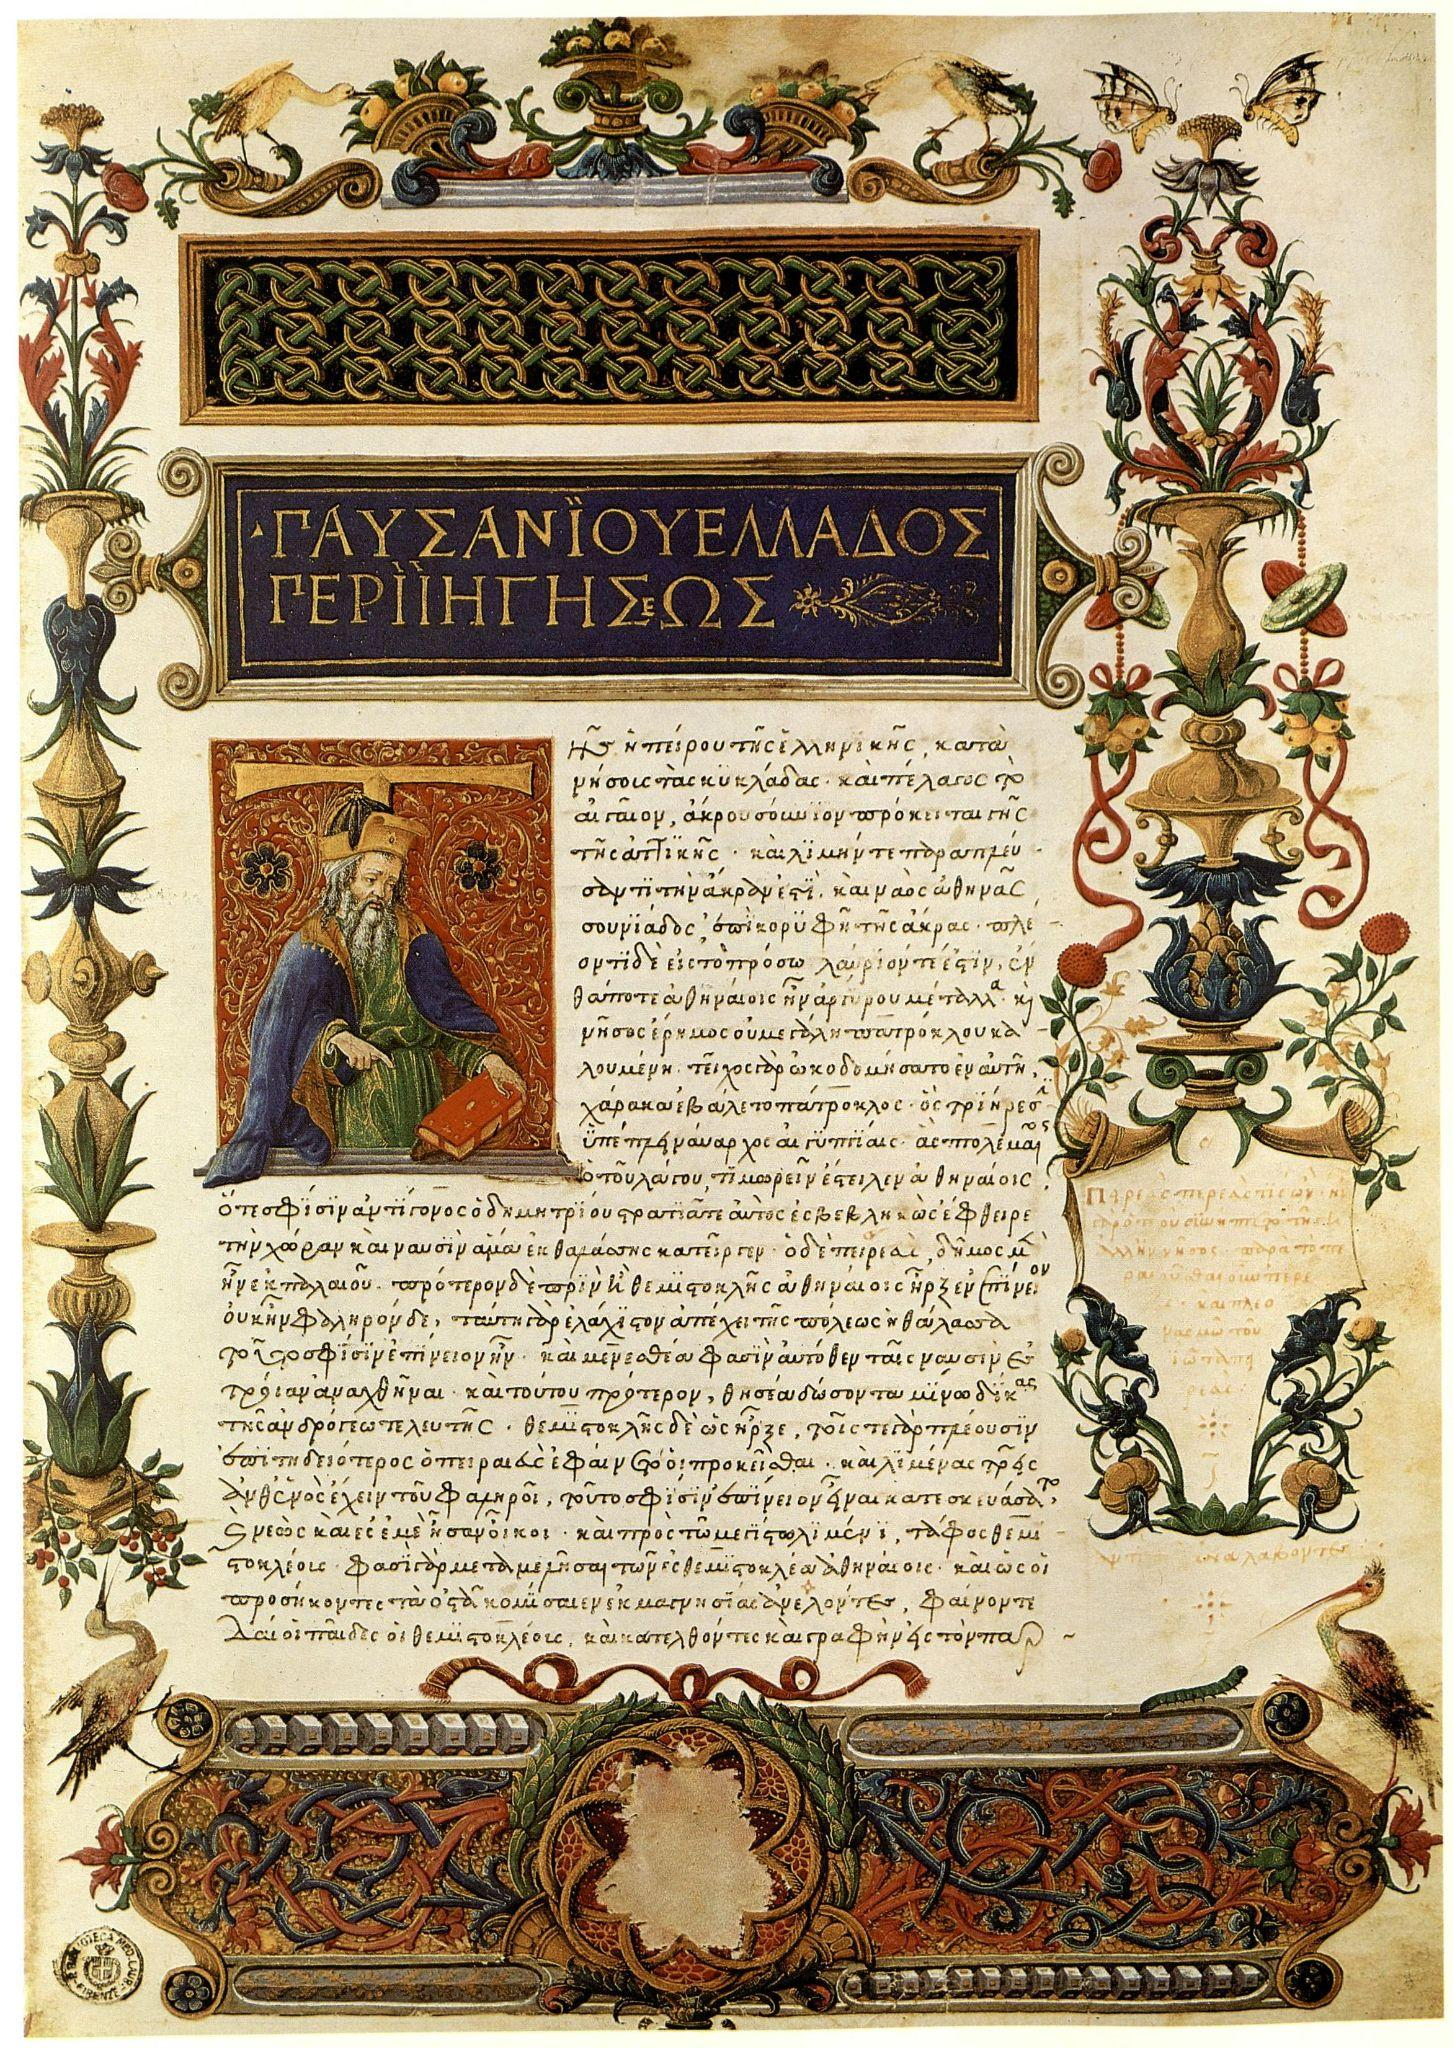 ΠΑΥΣΑΝΪΟΥ ΕΛΛΑΔΟΣ
ΠΕΡΙΪΗΓΗΣΕΩΣ
ῆς ἠπείρου τῆς ἑλληνικῆς, κατὰ
νήσοις τὰς κυκλάδας· καὶ πέλαγος τὸ
αἰγαῖον, ἄκρον σούνιον πρόκειται γῆς
τῆς ἀττϊκῆς· καὶ λιμήν τε παραπλεύ
σαντϊ τὴν ἄκραν ἐστϊ. καὶ ναὸς ἀθηνᾶς
σουνϊάδος, ἐπὶ κορϋφῆ τῆς ἄκρας· πλέ
οντϊ δὲ εἰς τὸ πρόσω λαύριόν τέ ἐστϊν, ἔν
θα ποτὲ ἀθηναίοις ἦν ἀργύρου μέταλλα. κὶ
νῆσος ἔρημος οὐ μεγάλη πατρόκλου κα
λουμένη· τεῖχος γὰρ ὠκοδομήσατο ἐν αὐτῆ,
χάρακα ἐβάλετο πάτροκλος· ὃς τριήρεσϊ
ὑπέπλει ναύαρχος αἰγυπτίαις· ἃς πτολεμαῖος
ὁ τοῦ λάγου, τιμωρεῖν ἔστειλεν ἀθηναίοις.
ὅτε σφϊσϊν ἀντίγονος ὁ δημητρίου στρατιᾶ τε αὐτὸς ἐσβεβληκὼς ἔφθειρε
τὴν χώραν καὶ ναυσϊν ἅμα ἐκ θαλάσσης κατεῖργεν· ὁ δὲ πειρεαὶ, δῆμος μὲν
ἦν ἐκ παλαιοῦ· πρότερον δὲ πρϊν ἢ θεμϊστοκλῆς ἀθηναίοις ἦρξεν ἐπίνειον
οὐκ ἦν φαληρὸν δέ, ταύτη γὰρ ἐλάχϊστον ἀπέχει τῆς πόλεως ἡ θάλασσα
τοῦτο σφίσϊν ἐπίνειον ἦν· καὶ μενεσθέα φασὶν αὐτόθεν ταῖς ναυσὶν ἐς
τροίαν ἀναχθῆναι· καὶ τούτου πρότερον, θησέα δώσοντα μίνω δίκας
τῆς ἀνδρόγεω τελευτῆς· θεμϊστοκλῆς δὲ ὡς ἦρξε, τοῖς τε γὰρ πλέουσϊν
ἐπϊτηδειότερος ὁ πειραιὲς ἐφαίνετο οἱ προκεῖσθαι· καὶ λϊμένας τρεῖς
ἀνθ ἑνὸς ἔχειν τοῦ φαληροῖ, τοῦτο σφίσϊν ἐπίνειον εἶναι κατεσκευάσατο,
νεὼς καὶ ἐς ἐμὲ ἦσαν οἶκοι· καὶ πρὸς τῶ μεγίστω λϊμένϊ, τάφος θεμϊ
στοκλέοις· φασὶ γὰρ μεταμελῆσαι τῶν ἐς θεμϊστοκλέα ἀθηναίοις· καὶ ὡς οἱ
προσήκοντες τὰ ὀστᾶ κομίσαιεν ἐκ μαγνησίας ἀνελόντες, φαίνονται
δὲ οἱ παῖδες οἱ θεμϊστοκλέοις, καὶ κατελθόντες καὶ γραφὴν ἐς τὸν παρ
BIBLIOTECA MED. LAUR.
FIRENZE